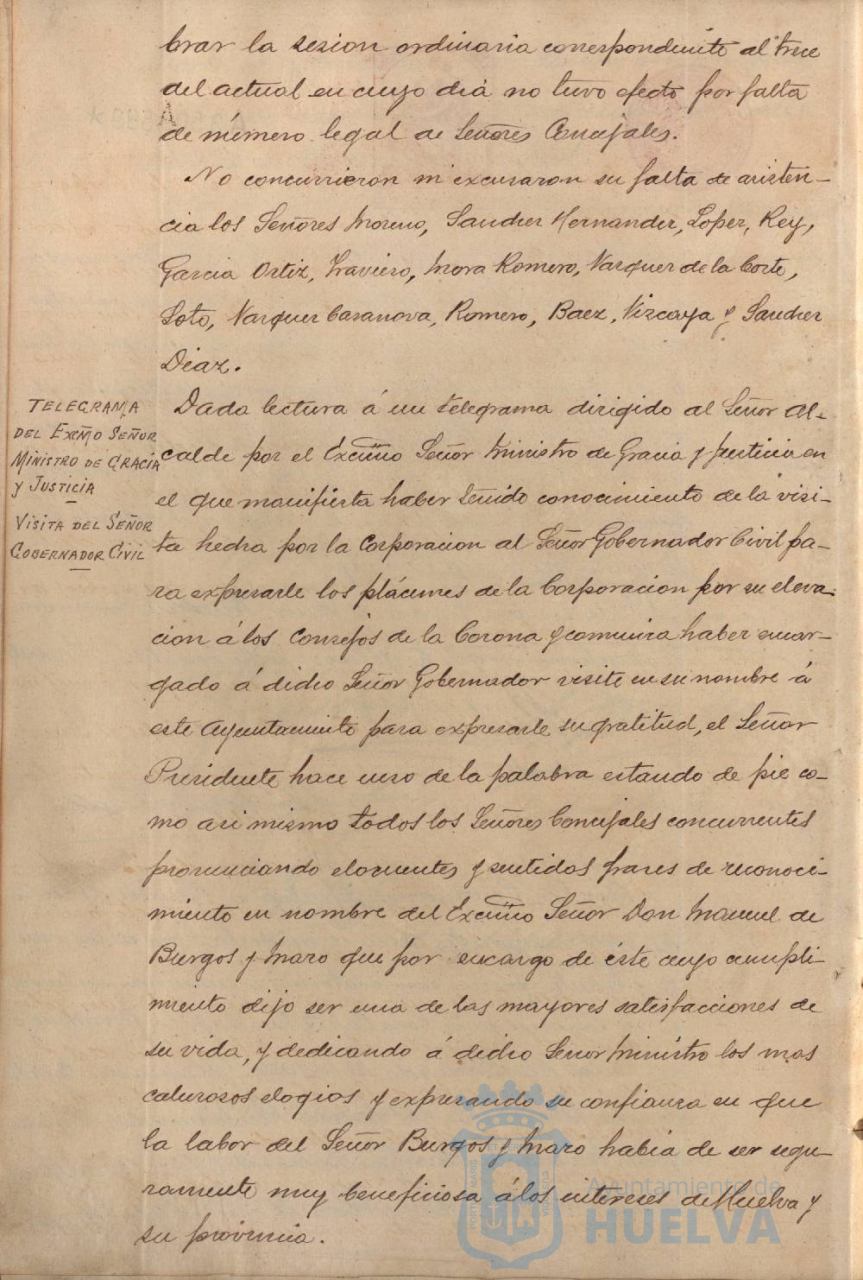 brar la sesion ordinaria correspondiente al trece
del actual en cuyo dia no tuvo efecto por falta
de número legal de Señores Concejales.
No concurrieron ni excusaron su falta de asisten-
cia los Señores Moreno, Sanchez Hernandez, Lopez, Rey,
Garcia Ortiz, Traviero, Mora Romero, Vazquez de la Corte,
Soto, Vazquez Casanova, Romero, Baez, Vizcaya y Sanchez
Diaz.
TELEGRAMA
DEL EXCMO SEÑOR
MINISTRO DE GRACIA
Y JUSTICIA
-
VISITA DEL SEÑOR
GOBERNADOR CIVIL
-
Dada lectura á un telegrama dirigido al Señor Al-
calde por el Excmo Señor Ministro de Gracia y Justicia en
el que manifiesta haber tenido conocimiento de la visi-
ta hecha por la Corporacion al Señor Gobernador Civil pa-
ra expresarle los plácemes de la Corporacion por su eleva-
cion á los Consejos de la Corona y comunica haber encar-
gado á dicho Señor Gobernador visite en su nombre á
este Ayuntamiento para expresarle su gratitud, el Señor
Presidente hace uso de la palabra estando de pie co-
mo asi mismo todos los Señores Concejales concurrentes
pronunciando elocuentes y sentidas frases de reconoci-
miento en nombre del Excmo Señor Don Manuel de
Burgos y Mazo que por encargo de éste cuyo cumpli-
miento dijo ser una de las mayores satisfacciones de
su vida, y dedicando á dicho Señor Ministro los mas
calurosos elogios y expresando su confianza en que
la labor del Señor Burgos y Mazo habia de ser segu-
ramente muy beneficiosa á los intereses de Huelva y
su provincia.
Ayuntamiento de
HUELVA